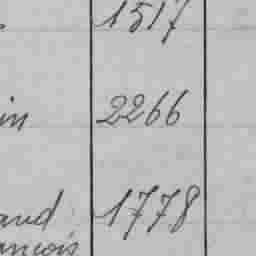 1517
in 2266
and 1778
ançois